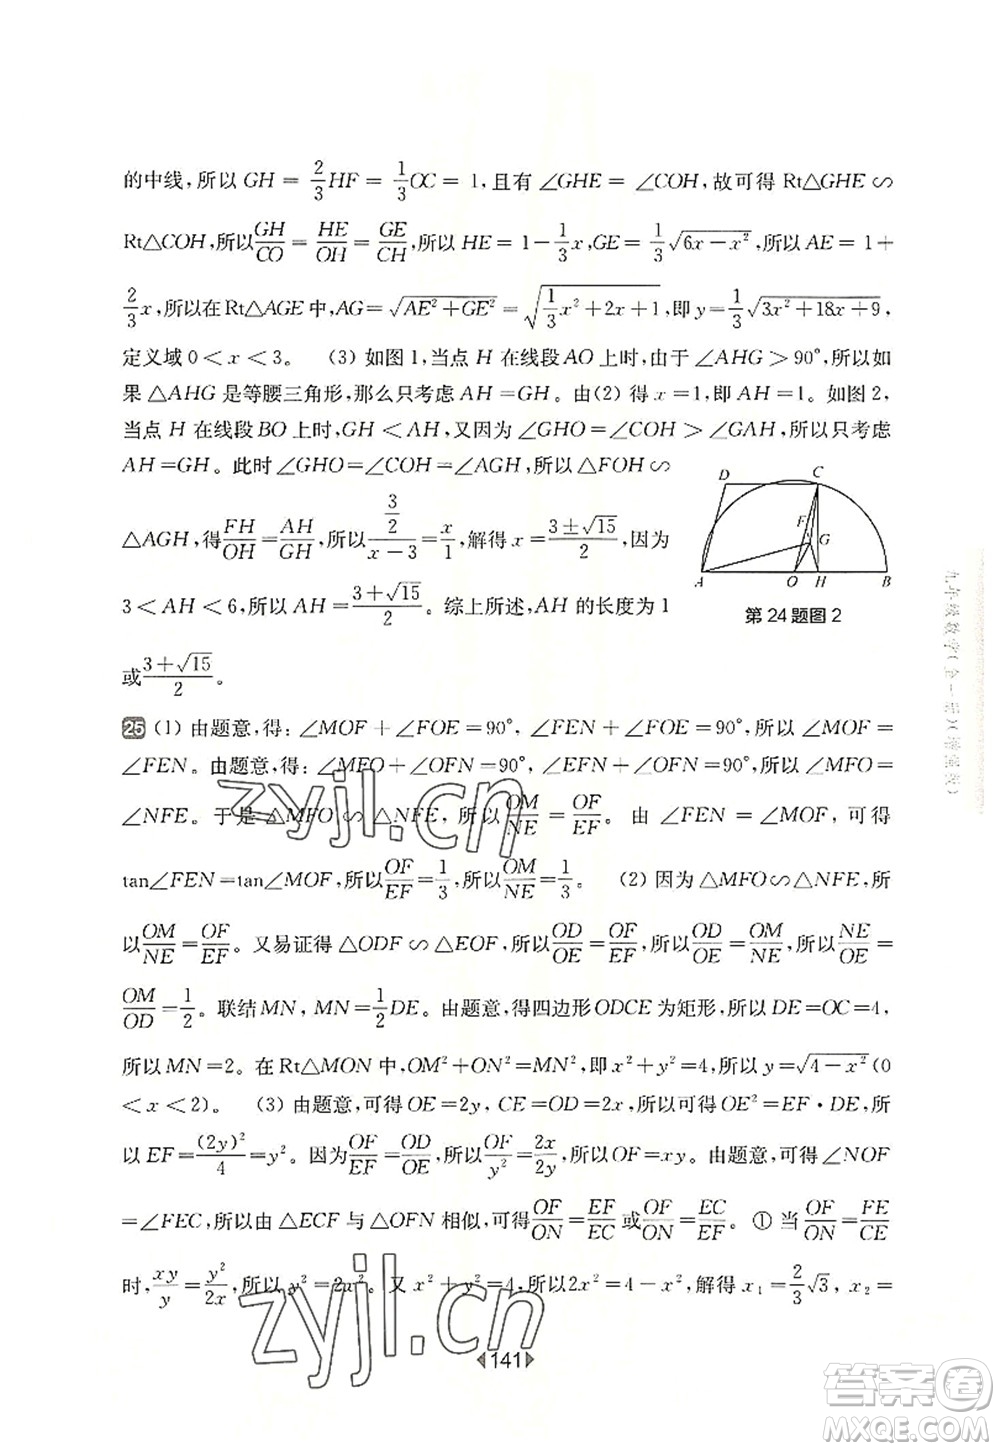 的中线，所以 GH = 2/3 HF = 1/3 OC = 1，且有 ∠GHE = ∠COH，故可得 Rt△GHE ∽
Rt△COH，所以 GH/CO = HE/OH = GE/CH，所以 HE = 1 - 1/3 x，GE = 1/3 √(6x - x²)，所以 AE = 1 +
2/3 x，所以在 Rt△AGE 中，AG = √(AE² + GE²) = √(1/3 x² + 2x + 1)，即 y = 1/3 √(3x² + 18x + 9)，
定义域 0 < x < 3。 （3）如图 1，当点 H 在线段 AO 上时，由于 ∠AHG > 90°，所以如
果 △AHG 是等腰三角形，那么只考虑 AH = GH。由（2）得 x = 1，即 AH = 1。如图 2，
当点 H 在线段 BO 上时，GH < AH，又因为 ∠GHO = ∠COH > ∠GAH，所以只考虑
AH = GH。此时 ∠GHO = ∠COH = ∠AGH，所以 △FOH ∽
△AGH，得 FH/OH = AH/GH，所以 (3/2)/(x - 3) = x/1，解得 x = (3 ± √15)/2，因为
3 < AH < 6，所以 AH = (3 + √15)/2。综上所述，AH 的长度为 1
或 (3 + √15)/2。
D C F G A O H B
第 24 题图 2
25 （1）由题意，得：∠MOF + ∠FOE = 90°，∠FEN + ∠FOE = 90°，所以 ∠MOF =
∠FEN。由题意，得：∠MFO + ∠OFN = 90°，∠EFN + ∠OFN = 90°，所以 ∠MFO =
∠NFE。于是 △MFO ∽ △NFE，所以 OM/NE = OF/EF。由 ∠FEN = ∠MOF，可得
tan∠FEN = tan∠MOF，所以 OF/EF = 1/3，所以 OM/NE = 1/3。 （2）因为 △MFO ∽ △NFE，所
以 OM/NE = OF/EF。又易证得 △ODF ∽ △EOF，所以 OD/OE = OF/EF，所以 OD/OE = OM/NE，所以 NE/OE =
OM/OD = 1/2。联结 MN，MN = 1/2 DE。由题意，得四边形 ODCE 为矩形，所以 DE = OC = 4，
所以 MN = 2。在 Rt△MON 中，OM² + ON² = MN²，即 x² + y² = 4，所以 y = √(4 - x²)（0
< x < 2）。 （3）由题意，可得 OE = 2y，CE = OD = 2x，所以可得 OE² = EF · DE，所
以 EF = (2y)²/4 = y²。因为 OF/EF = OD/OE，所以 OF/y² = 2x/2y，所以 OF = xy。由题意，可得 ∠NOF
= ∠FEC，所以由 △ECF 与 △OFN 相似，可得 OF/ON = EF/EC 或 OF/ON = EC/EF。① 当 OF/ON = FE/CE
时，xy/y = y²/2x，所以 y² = 2x²。又 x² + y² = 4，所以 2x² = 4 - x²，解得 x₁ = 2/3 √3，x₂ =
141
九年级数学（全一册）（增强版）
zyjl.cn
zyjl.cn
答案圈
MXQE.COM